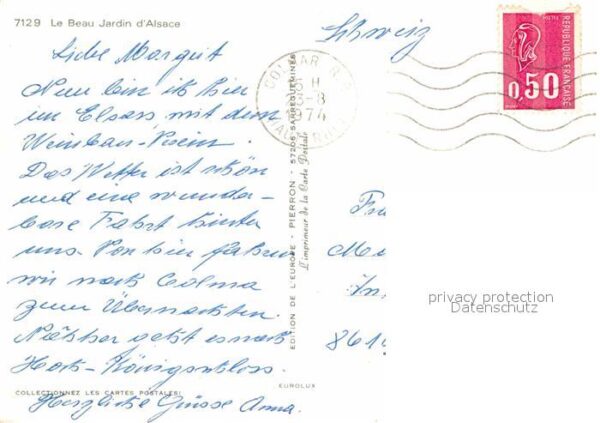 7129 Le Beau Jardin d'Alsace
Schweiz
Liebe Margrit
Nun bin ich hier
im Elsass mit dem
Weinbau-Verein.
Das Wetter ist schön
und eine wunder-
bare Fahrt hinter
uns. Von hier fahren
wir nach Colmar
zum Übernachten.
Nachher geht es nach
Hoch-Königsschloss.
Herzliche Grüsse Anna.
COLLECTIONNEZ LES CARTES POSTALES!
EUROLUX
EDITION DE L'EUROPE - PIERRON - 57206 SARREGUEMINES
L'imprimeur de la Carte Postale
COLMAR R.P.
H
-8
1974
HAUT-RHIN
REPUBLIQUE FRANÇAISE
0,50
Fr
Me
In
861
privacy protection
Datenschutz